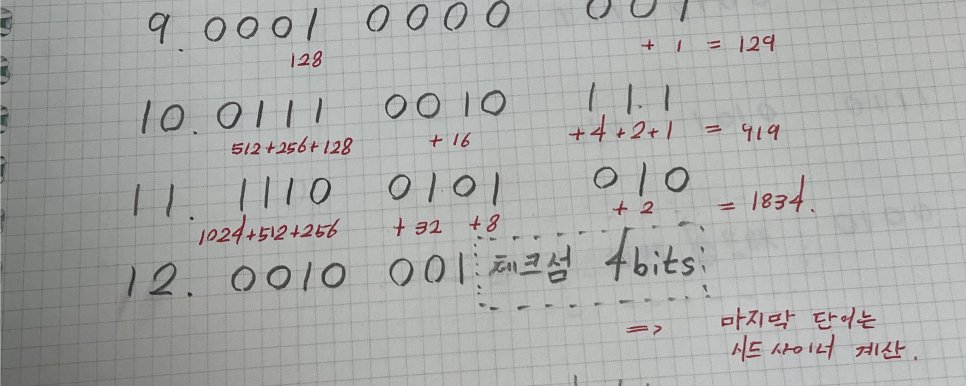 9. 0001 0000 001
128 + 1 = 129
10. 0111 0010 111
512+256+128 +16 +4+2+1 = 919
11. 1110 0101 010
1024+512+256 +32 +8 +2 = 1834.
12. 0010 001 체크섬 4bits
=> 마지막 단어는
시드 사이너 계산.